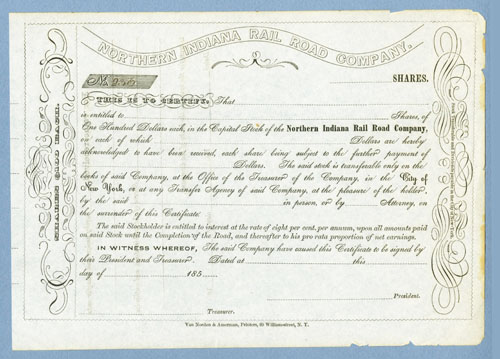 NORTHERN INDIANA RAIL ROAD COMPANY.
No.
SHARES.
THIS IS TO CERTIFY, That
is entitled to Shares, of
One Hundred Dollars each, in the Capital Stock of the Northern Indiana Rail Road Company,
on each of which Dollars are hereby
acknowledged to have been received, each share being subject to the further payment of
Dollars. The said stock is transferable only on the
books of said Company, at the Office of the Treasurer of the Company, in the City of
New York, or at any Transfer Agency of said Company, at the pleasure of the holder,
by the said in person, or by Attorney, on
the surrender of this Certificate.
The said Stockholder is entitled to interest at the rate of eight per cent. per annum, upon all amounts paid
on said Stock until the Completion of the Road, and thereafter to his pro rata proportion of net earnings.
IN WITNESS WHEREOF, The said Company have caused this Certificate to be signed by
their President and Treasurer. Dated at this
day of 185
President.
Treasurer.
Van Norden & Amerman, Printers, 60 Williamstreet, N. Y.